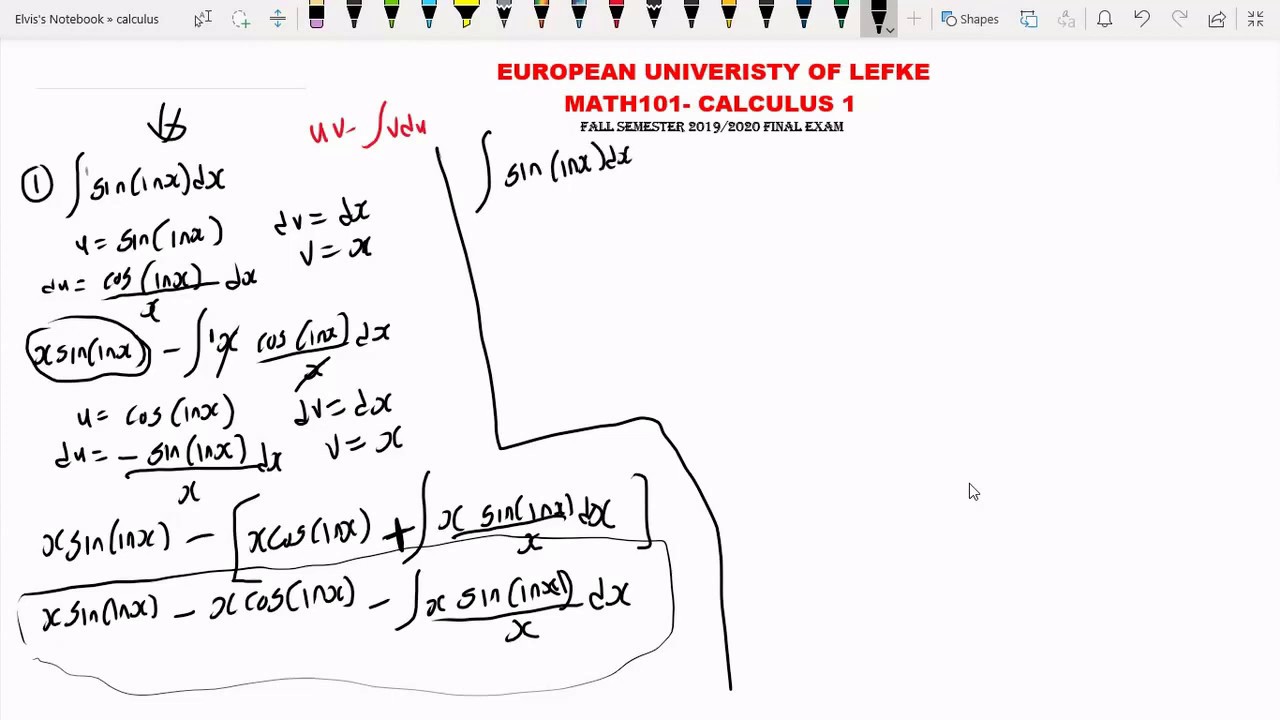 Elvis's Notebook » calculus
Shapes
EUROPEAN UNIVERISTY OF LEFKE
MATH101- CALCULUS 1
FALL SEMESTER 2019/2020 FINAL EXAM
uv- ∫vdu
① ∫sin(lnx)dx
u= sin(lnx) dv= dx
v= x
du= cos(lnx)/x dx
xsin(lnx) - ∫ 1x cos(lnx)/x dx
u= cos(lnx) dv= dx
du= - sin(lnx)/x dx v= x
xsin(lnx) - [xcos(lnx) + ∫ x sin(lnx)/x dx]
xsin(lnx) - xcos(lnx) - ∫ x sin(lnx)/x dx
∫ sin(lnx)dx